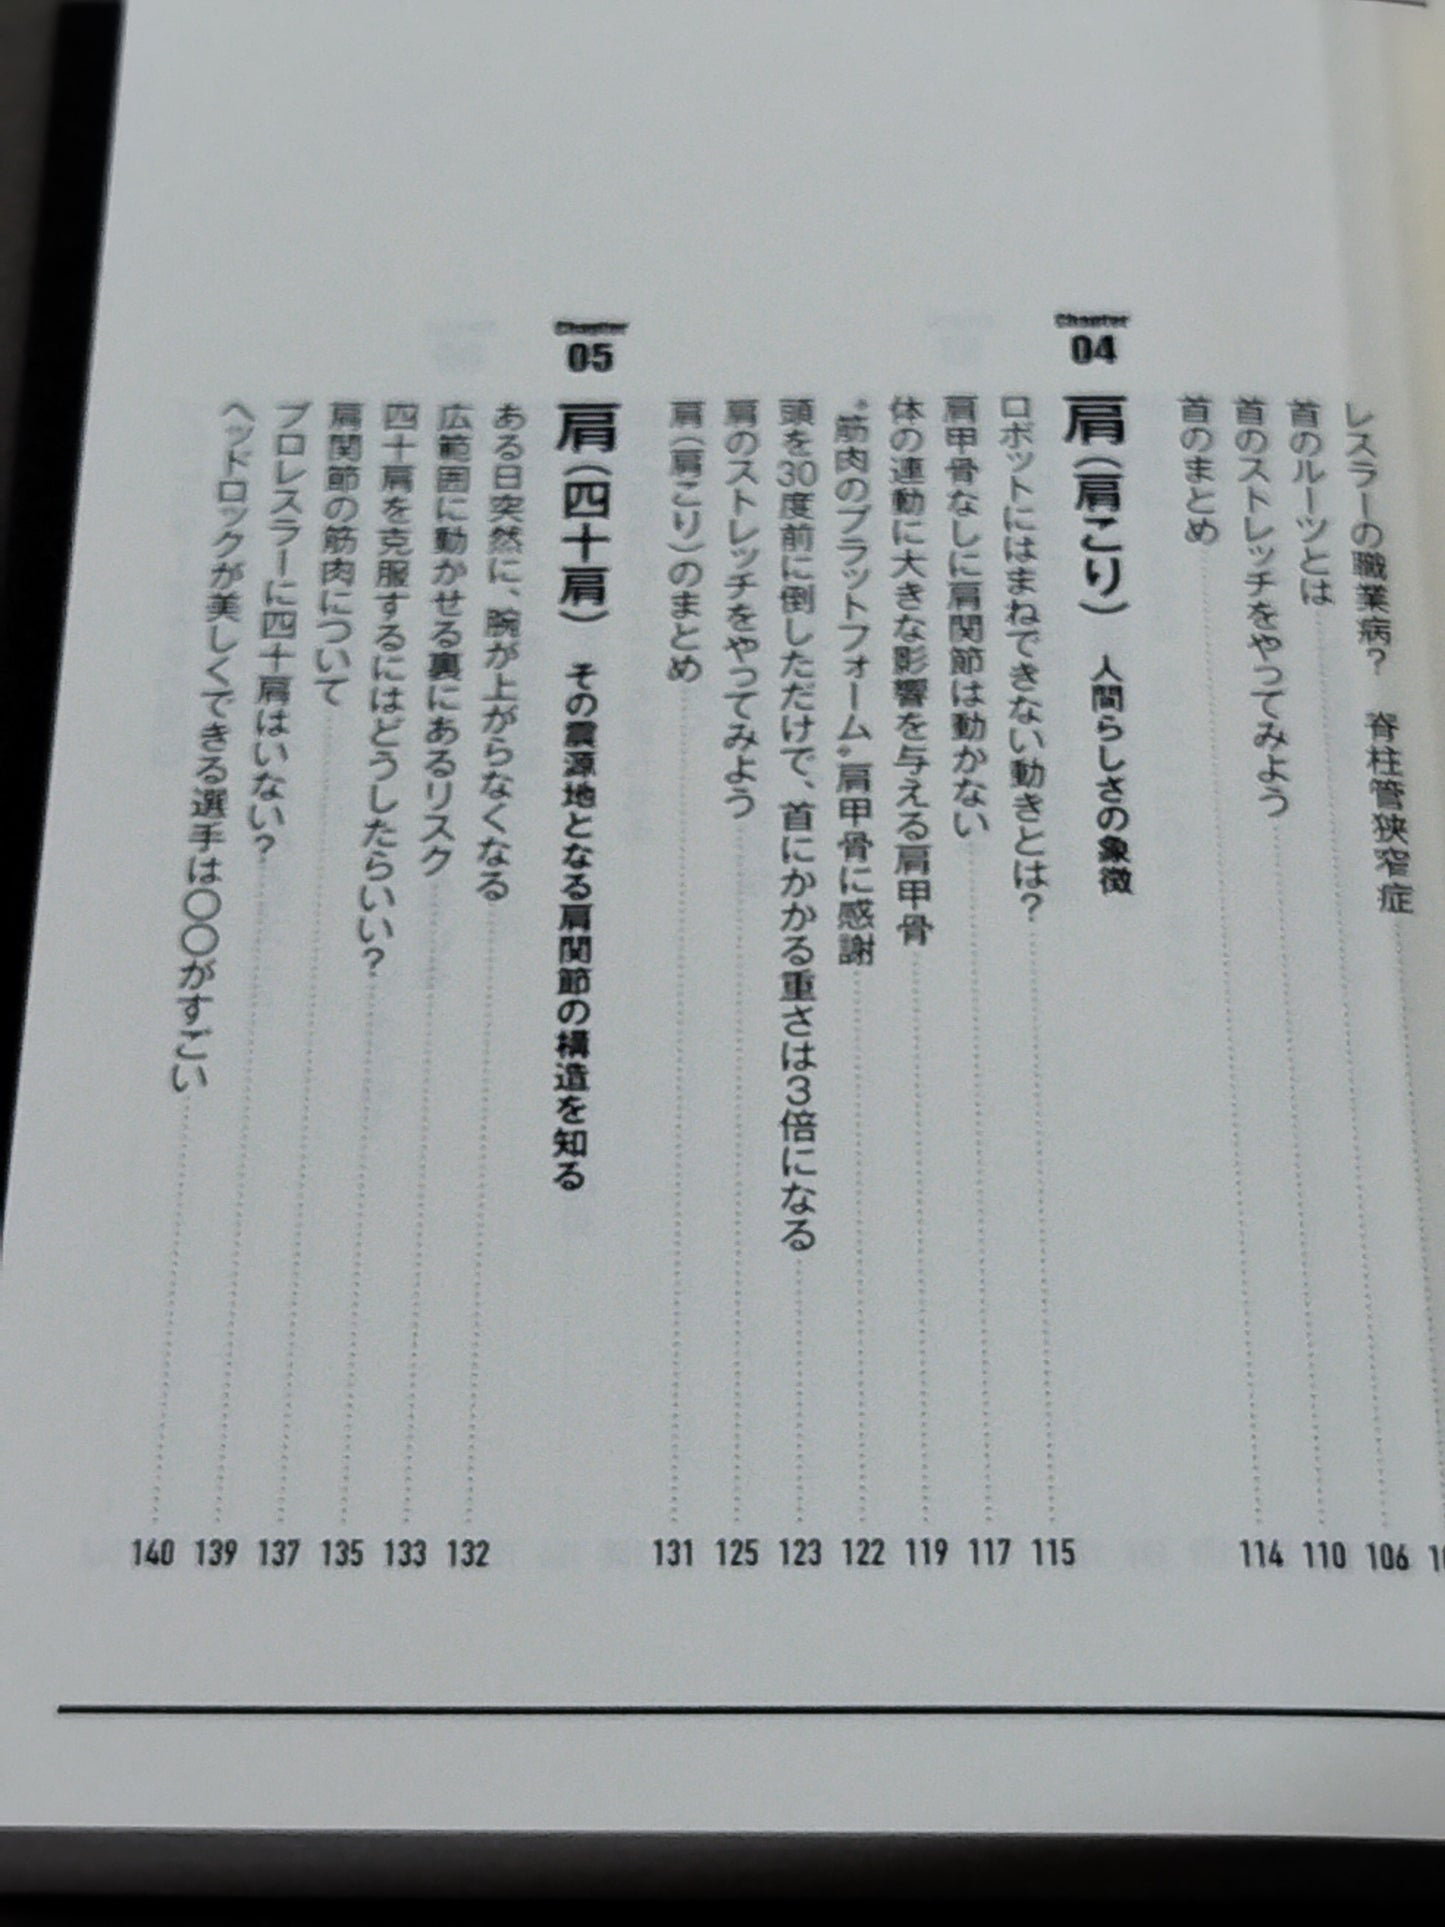 レスラーの職業病？　脊柱管狭窄症 106
首のルーツとは 110
首のストレッチをやってみよう 114
首のまとめ
Chapter
04
肩（肩こり）　人間らしさの象徴
ロボットにはまねできない動きとは？ 115
肩甲骨なしに肩関節は動かない 117
体の連動に大きな影響を与える肩甲骨 119
“筋肉のプラットフォーム”肩甲骨に感謝 122
頭を30度前に倒しただけで、首にかかる重さは3倍になる 123
肩のストレッチをやってみよう 125
肩（肩こり）のまとめ 131
Chapter
05
肩（四十肩）　その震源地となる肩関節の構造を知る
ある日突然に、腕が上がらなくなる 132
広範囲に動かせる裏にあるリスク 133
四十肩を克服するにはどうしたらいい？ 135
肩関節の筋肉について 137
プロレスラーに四十肩はいない？ 139
ヘッドロックが美しくできる選手は〇〇がすごい 140